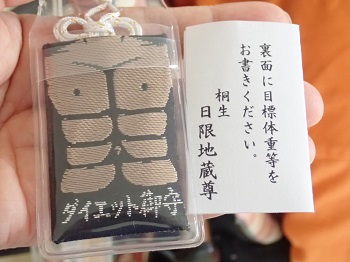 ダイエット御守
裏面に目標体重等を
お書きください。
桐生
日限地蔵尊